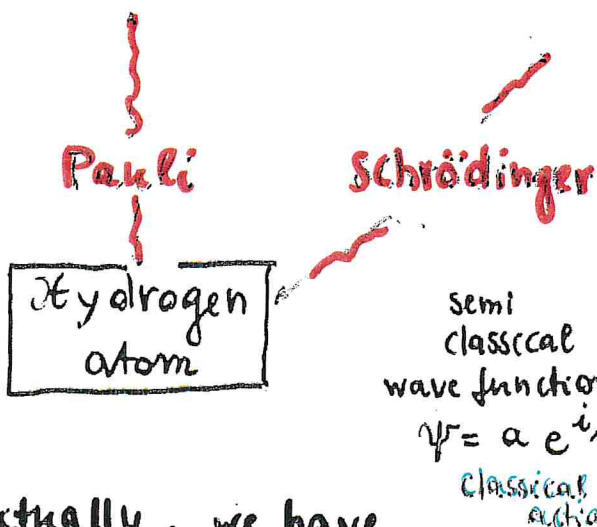 Pauli Schrödinger
Hydrogen
atom
semi
classical
wave function
ψ = a e^i
classical
actually, we have